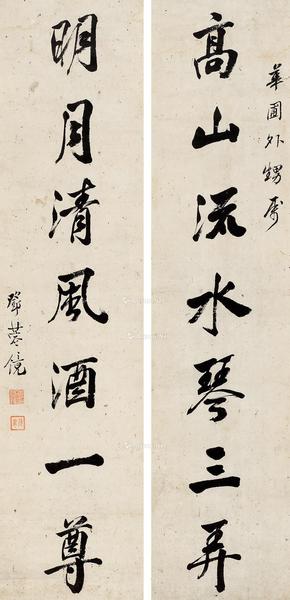 華圃外甥属
高山流水琴三弄
明月清風酒一尊
鄧蓉鏡